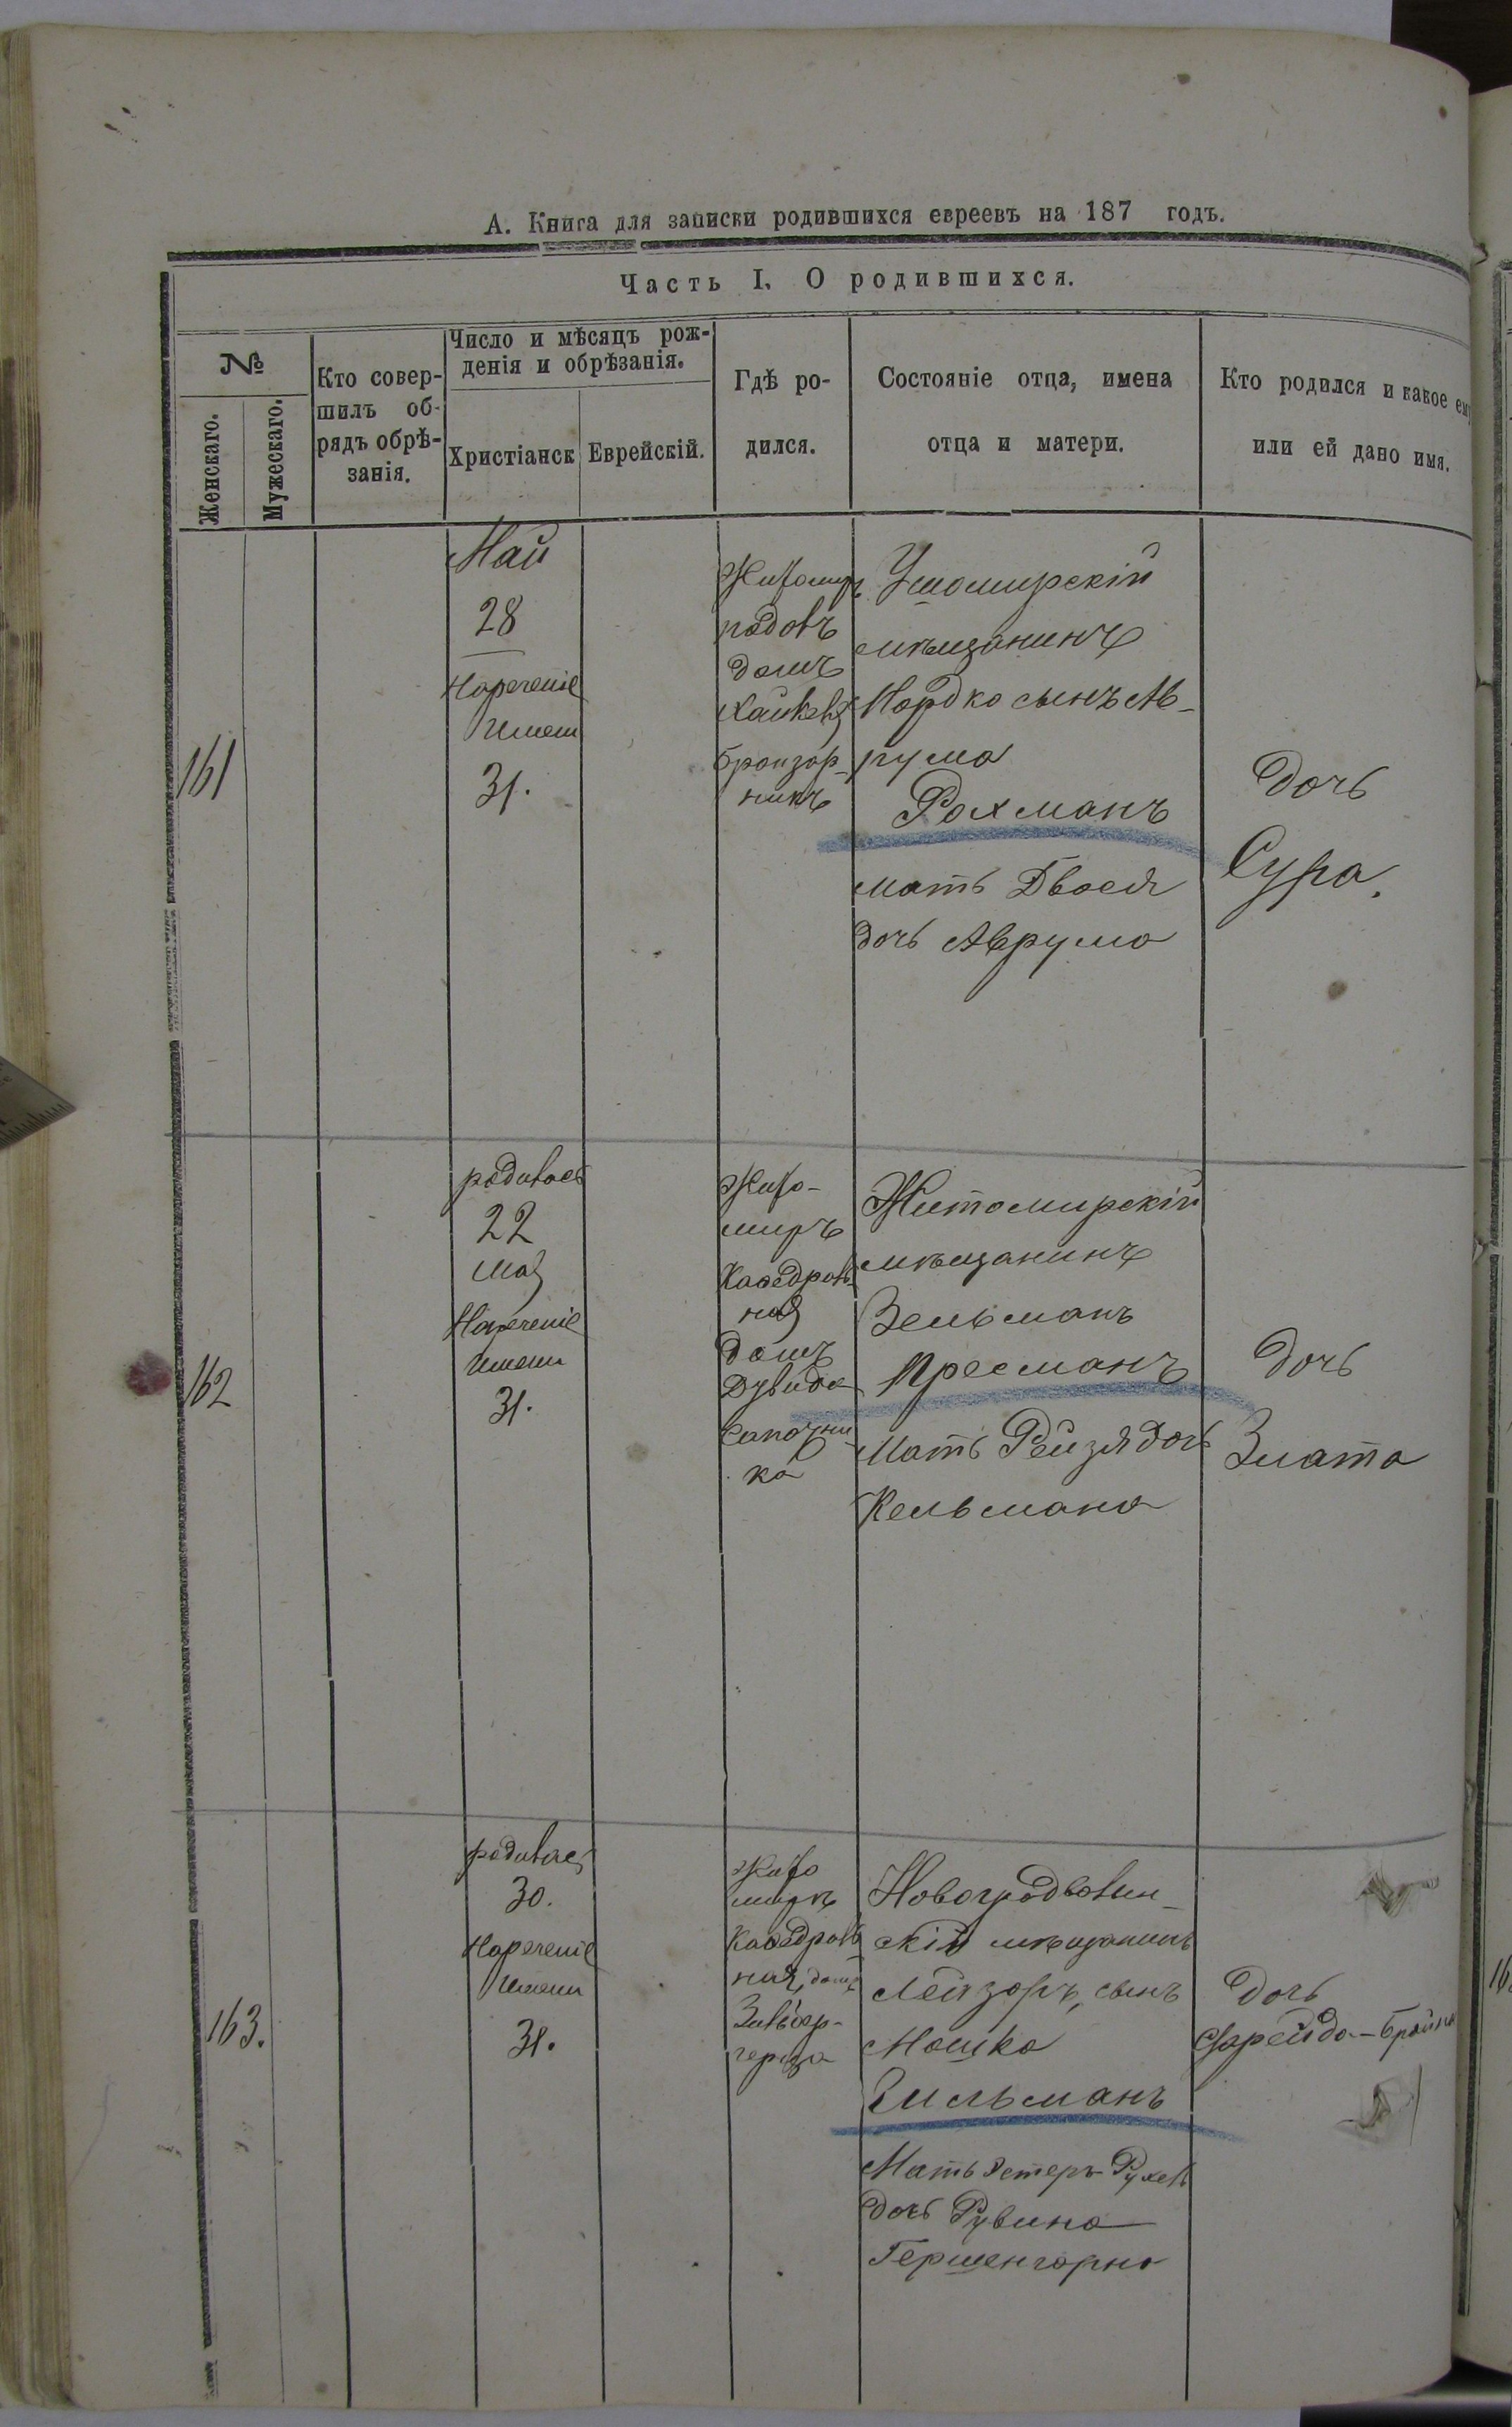 А. Книга для записки родившихся евреевъ на 187 годъ.
Часть I. О родившихся.
№
Женскаго.
Мужескаго.
Кто совер-
шилъ об-
рядъ обрѣ-
занія.
Число и мѣсяцъ рож-
денія и обрѣзанія.
Христіанск
Еврейскій.
Гдѣ ро-
дился.
Состояніе отца, имена
отца и матери.
Кто родился и какое ему
или ей дано имя.
161
Май
28
Наречение
имени
31.
Житомиръ
домъ
бронзор-
никъ
Ушомирскій
мѣщанинъ
Мордко сынъ Ав-
рума
Рохманъ
мать Двося
дочь Аврума
дочь
Сура.
162
родилась
22
мая
Наречение
имени
31.
Жито-
миръ
Каѳедраль-
ная
домъ
Дувида
Сапожни-
ка
Житомирскій
мѣщанинъ
Зельманъ
Пресманъ
Мать Рейзя дочь
Кельмана
дочь
Злата
163.
родилась
30.
Наречение
имени
31.
Жито
миръ
Каѳедраль
ная, домъ
Зильбер-
Новоградволын-
скій мѣщанинъ
Лейзоръ, сынъ
Мошка
Гильманъ
Мать Эстеръ-Рухель
дочь Рувина
Гершенгорна
дочь
Фрейда-Брайна